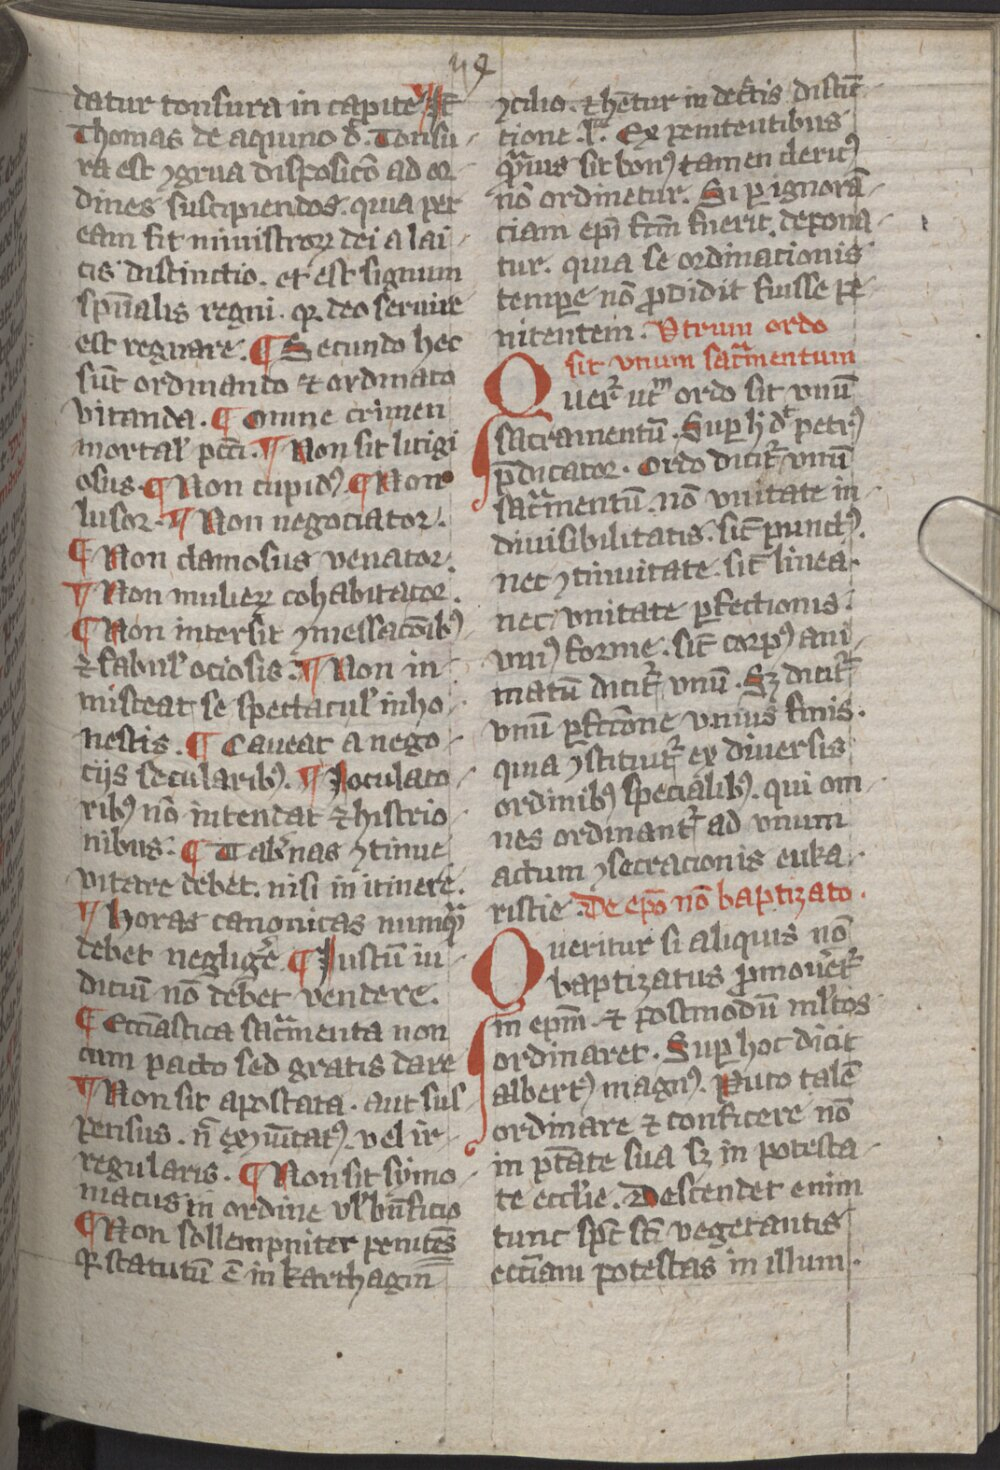 datur tonsura in capite ¶ Itē
Thomas de aquino d̄. Tonsu
ra est ꝯgrua disposicō ad or
dines suscipiendos. quia per
eam fit ministroꝝ dei a lai
cis distinctio. et est signum
spūalis regni. qꝛ deo seruire
est regnare. ¶ Secundo hec
sūt ordinando ⁊ ordinato
vitanda. ¶ Omne crimen
mortal' pcci. ¶ Non sit litigi
osus. ¶ Non cupidꝰ. ¶ Non
lusor. ¶ Non negociator.
¶ Non clamosus venator.
¶ Non mulieꝝ cohabitator.
¶ Non intersit ꝯmessacōibꝰ
⁊ fabul' ociosis. ¶ Non in
misceat se spectacul' inho
nestis. ¶ Caueat a nego
cijs secularibꝰ. ¶ Ioculato
ribꝰ nō intendat ⁊ histrio
nibus. ¶ Tab'nas ꝯtinue
vitare debet. nisi in itinere.
¶ Horas canonicas numqᷓ
debet neglig'e. ¶ Iustū iu
diciū nō debet vendere.
¶ Eccīastica sac̄menta non
cum pacto sed gratis dare
¶ Non sit apostata. aut sus
pensus. n̄ exꝯūicatꝰ. vel ir
regularis. ¶ Non sit symo
niacus in ordine vl' bn̄ficio
¶ Non sollempniter penitēs
qꝛ statutū ē in karthagin̄
ꝯcilio. ⁊ hētur in dec̄tis distīc
tione .lᵃ. Ex penitentibus
qᷓuis sit bonꝰ tamen clericꝰ
nō ordinetur. Si ꝑ ignorā
ciam ep̄i fc̄m fuerit. depona
tur. quia se ordinacionis
tempore nō ꝓdidit fuisse pe
nitentem. Vtrum ordo
sit vnum sacᷓmentum
Querꝭ utᵐ ordo sit vnū
sacramentū. Suꝑ h̄ dᵗ petrꝰ
p̄dicator. Ordo dicitꝭ vnū
sacᷓmentū. nō vnitate in
diuisibilitatis. sic̄ punctꝰ.
nec ꝯtinuitate. sic̄ linea.
nec vnitate ꝑfectionis.
vniꝰ forme. sic̄ corpꝰ ani
matū dicitꝭ vnū. Sꝫ dicitꝭ
vnū ꝑfectōne vnius finis.
quia ꝯstituitꝭ ex diuersis
ordinibꝰ specialibꝰ. qui om
nes ordinantꝭ ad vnum
actum ꝯsecracionis euka
ristie. De ep̄o nō baptizato.
Queritur si aliquis nō
baptizatus ꝓmouet'ꝭ
in ep̄m. ⁊ postmodū ml'tos
ordinaret. Super hoc dicit
albertꝰ magnꝰ. Puto talē
ordinare ⁊ conficere nō
in ptāte sua sꝫ in potesta
te eccl'ie. Descendet enim
tunc sp̄c sc̄i vegetantis
eccīam potestas in illum.